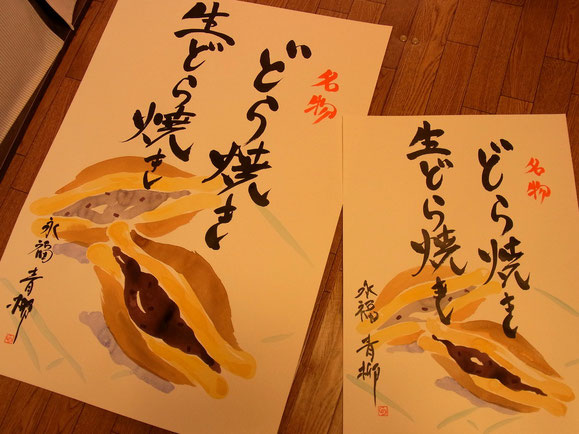 名物
どら焼き
生どら焼き
永福 青柳
名物
どら焼き
生どら焼き
永福 青柳